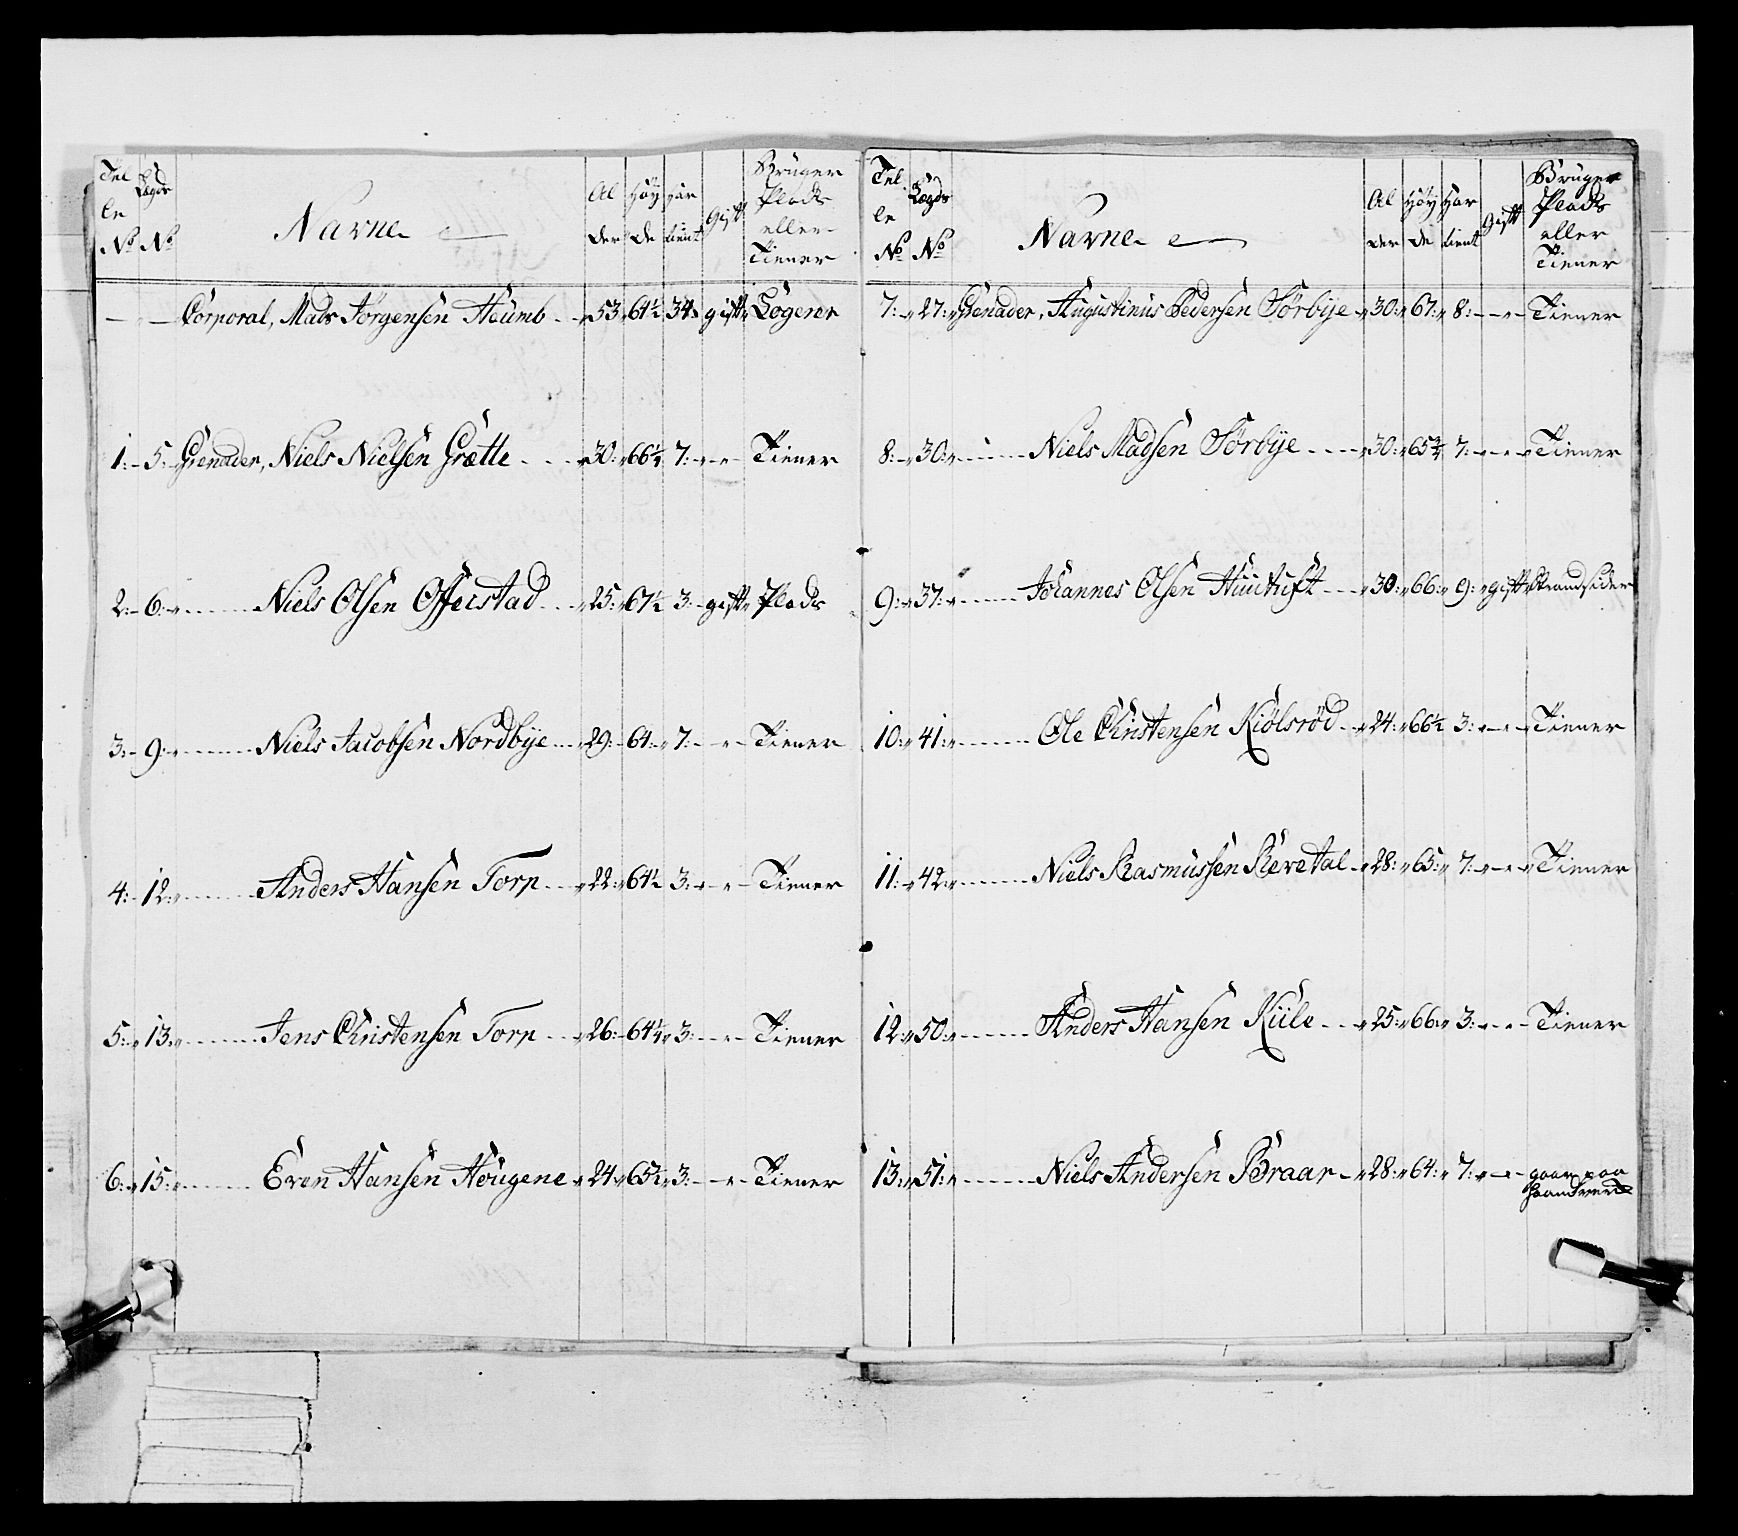 Tel Lægds Al Høy Har Gift Bruger
le der de tient Plads
No No Navne eller
Tiener
— — Corporal, Mads Jørgensen Heumb 53 64½ 34 gift Logerer
1: 5: Grenader, Niels Nielsen Grætte 30: 66¼ 7: Tiener
2: 6: Niels Olsen Offerstad 25: 67½ 3: gift Plads
3: 9: Niels Jacobsen Nordbÿe 29: 64: 7: Tiener
4: 12: Anders Hansen Torp 22: 64½ 3: Tiener
5: 13: Jens Christensen Torp 26: 64¼ 3: Tiener
6: 15: Even Hansen Hougene 24: 65½ 3: Tiener
Tel Lægds Al Høy Har Gift Bruger
le der de tient Plads
No No Navne eller
Tiener
7: 27: Grenader, Augustinus Pedersen Sørbÿe 30: 67: 8: Tiener
8: 30: Niels Madsen Sørbÿe 30: 65¾ 7: Tiener
9: 37: Johannes Olsen Huutuft 30: 66: 9: gift Strandsider
10: 41: Ole Christensen Kiølsrød 24: 66½ 3: Tiener
11: 42: Niels Rasmussen Revetal 28: 65: 7: Tiener
12: 50: Anders Hansen Kiile 25: 66: 3: Tiener
13: 51: Niels Andersen Braar 28: 64: 7: gaar paa
Haandverk